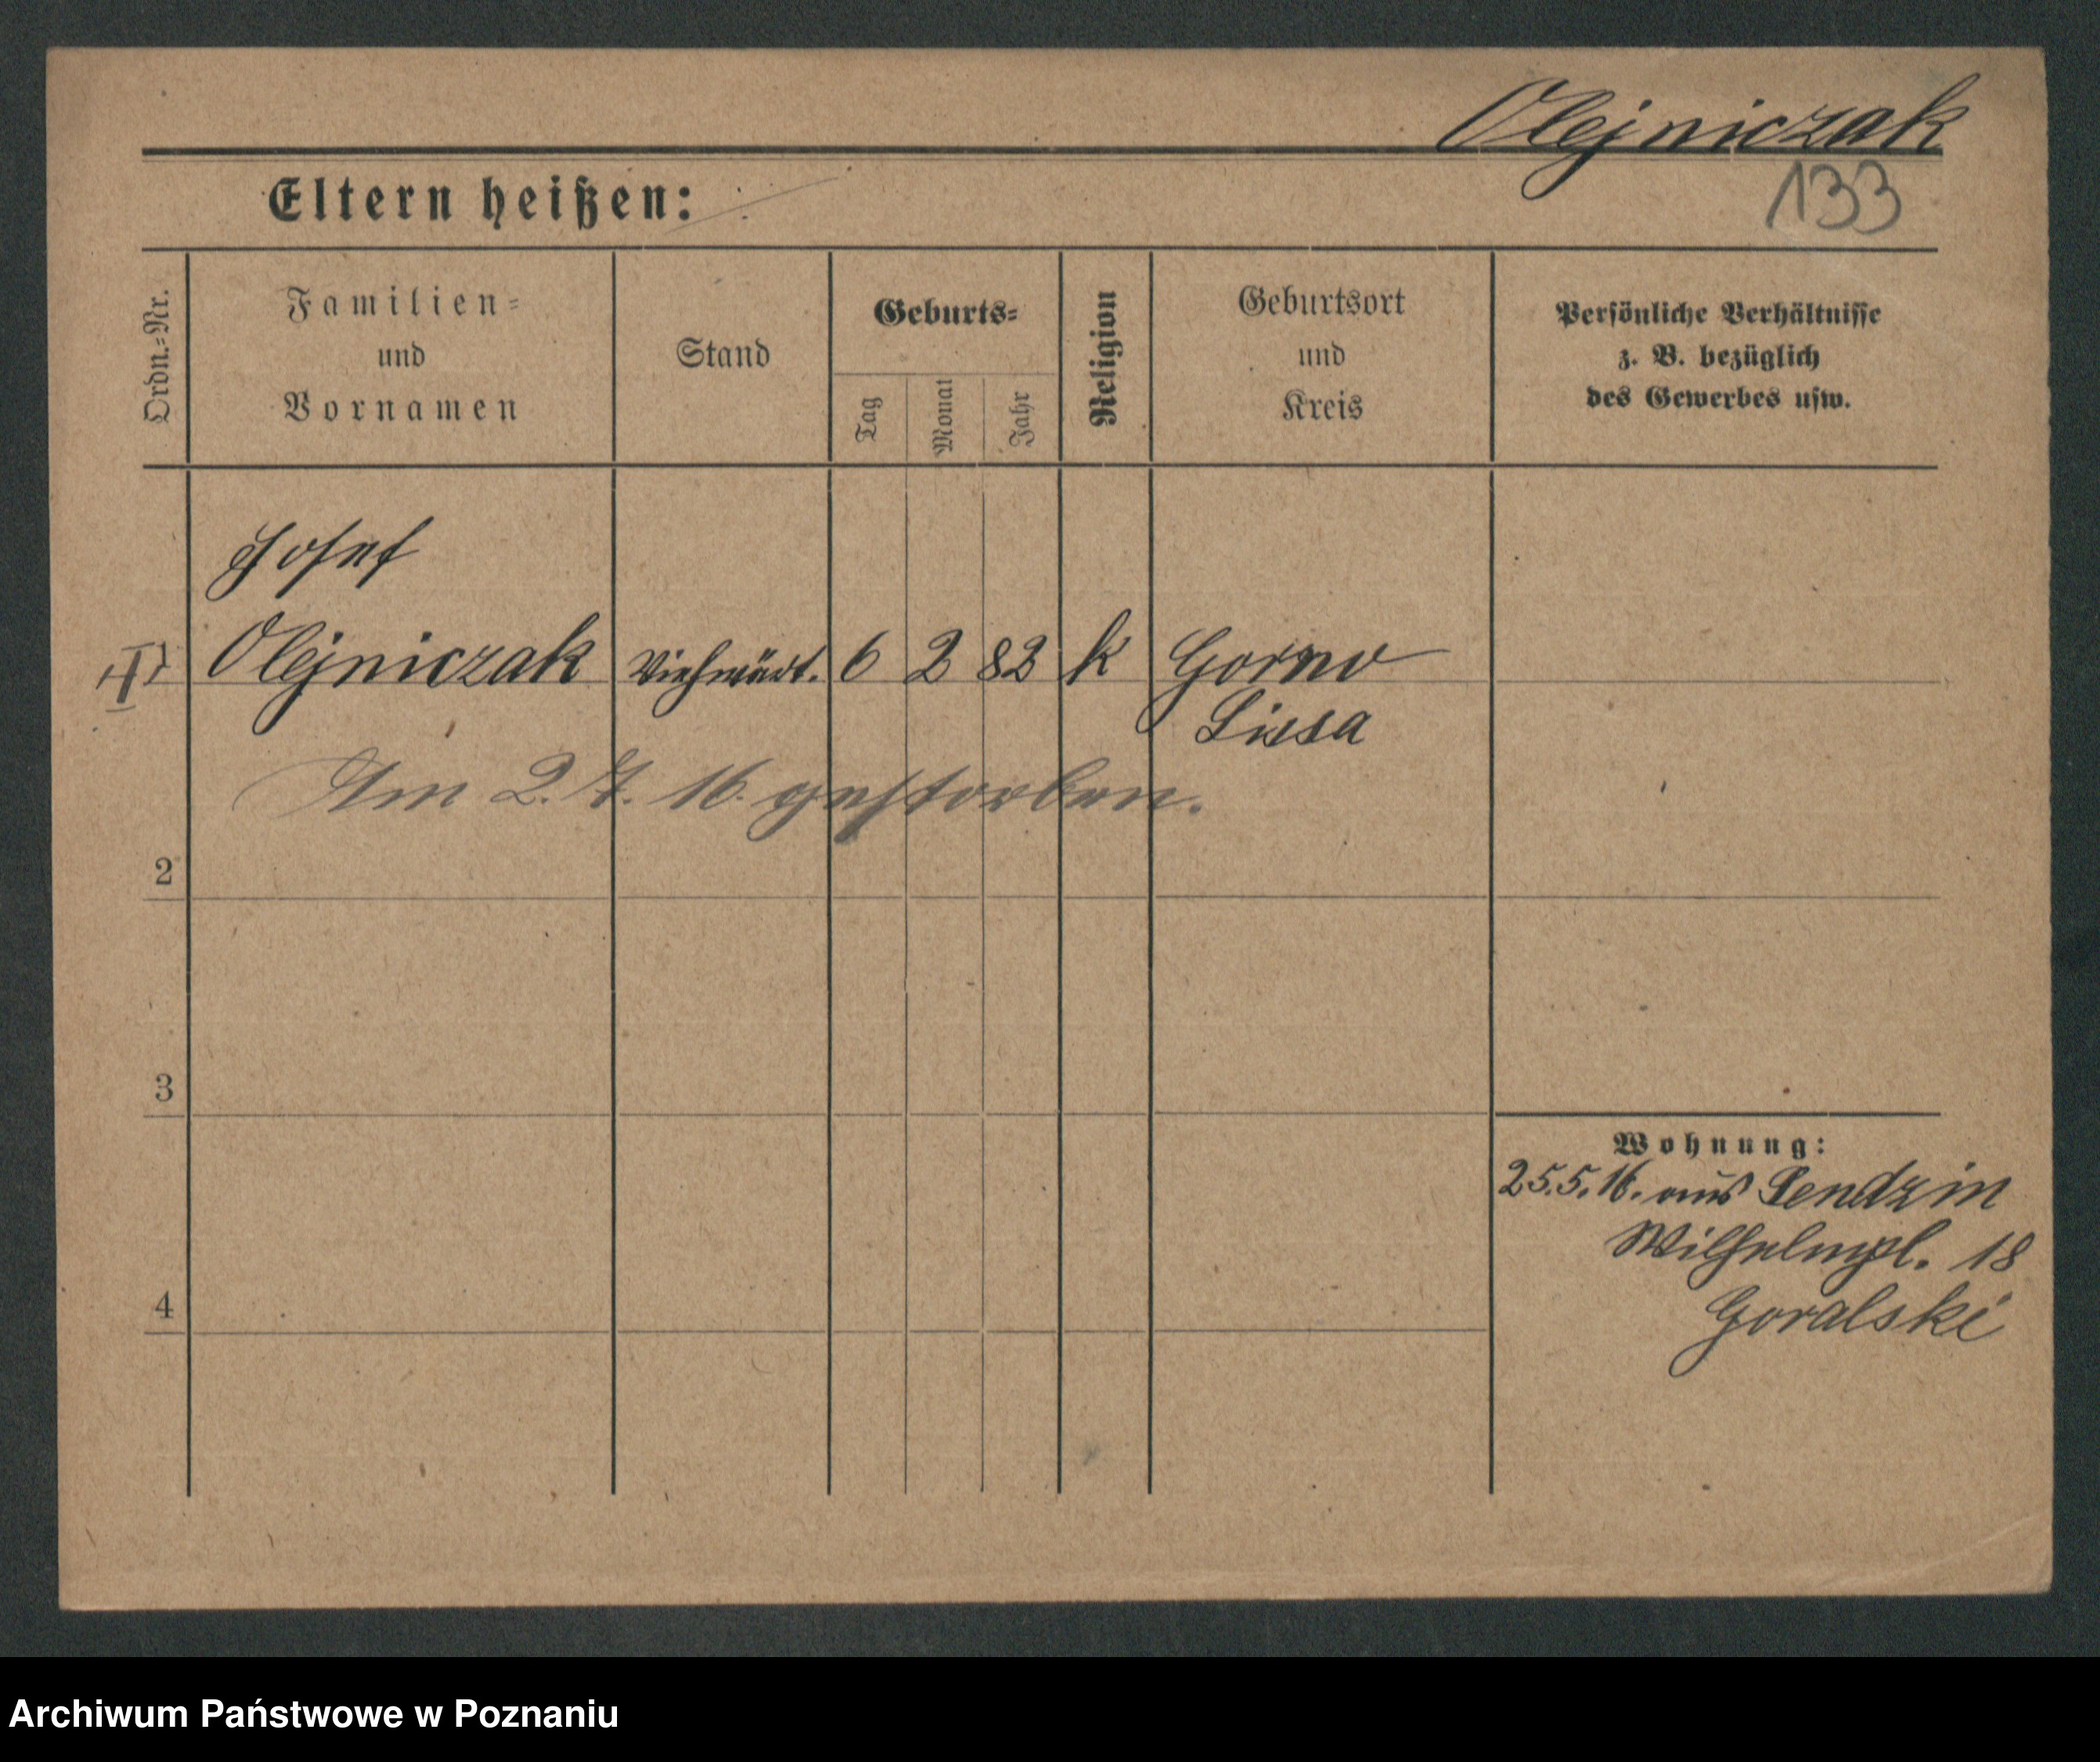 Olejniczak
133
Eltern heißen:
Ordn.-Nr.
Familien-
und
Vornamen
Stand
Geburts-
Tag
Monat
Jahr
Religion
Geburtsort
und
Kreis
Persönliche Verhältnisse
z. B. bezüglich
des Gewerbes usw.
Josef
1 Olejniczak Viehwärt. 6 2 82 k Gorno
Lissa
Am 2. 7. 16. gestorben.
2
3
Wohnung:
25.5.16. aus Sendzin
Wilhelmpl. 18
Goralski
4
Archiwum Państwowe w Poznaniu